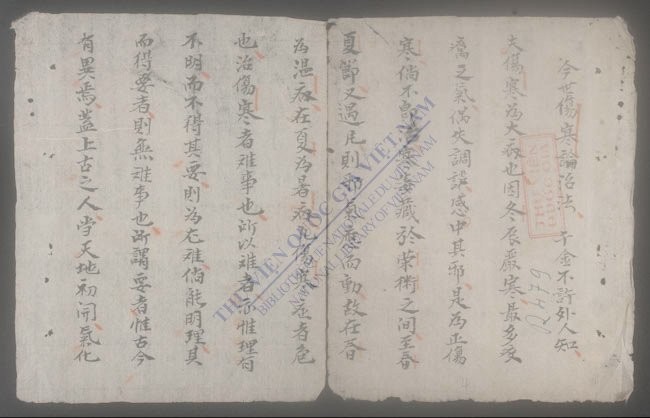 今世傷寒論治法 千金不許外人知
夫傷寒為大病也因冬辰嚴寒最多受
癘之氣偶失調護感中其邪是為正傷
寒倘不即寒毒藏於榮衛之間至春
夏節又遇則邪氣而動故在春
為温病在夏為暑病凡傷寒症者危
也治傷寒者难事也所以难者亦惟理
不明而不得其要則為尤难倘能明理其
而得要者則無难事也所謂要者惟古今
有異焉蓋上古之人當天地初開氣化
THƯ VIỆN QUỐC GIA VIỆT NAM
BIBLIOTHÈQUE NATIONALE DU VIETNAM
NATIONAL LIBRARY OF VIETNAM